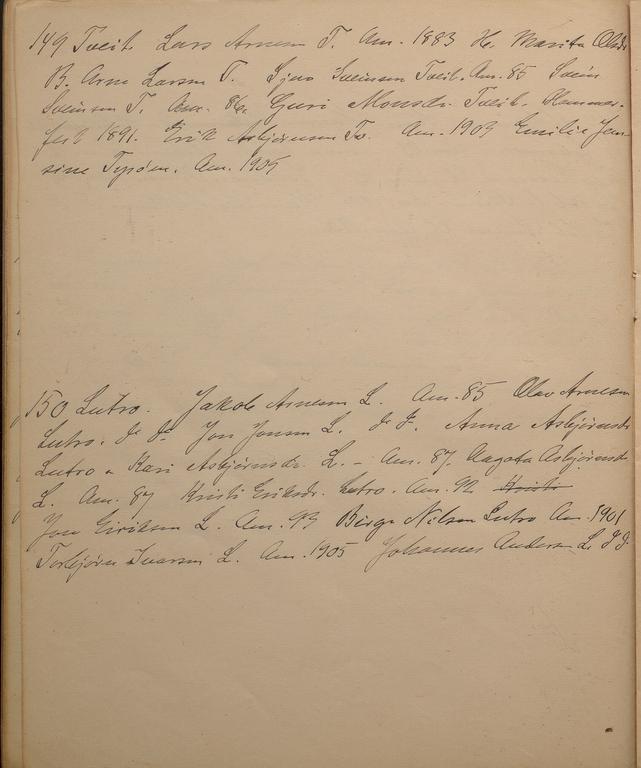 149 Tveit. Lars Arnesen T. Am. 1883 H. Marita Olsdr
B. Arne Larsen T. Sjur Sveinsen Tveit. Am. 85 Svein
Sveinsen T. Am. 86. Guri Monsdr. Tveit. Hammer-
fest 1891. Erik Asbjörnsen Tv. Am. 1903 Emilie Jen
sine Am. 1905
150 Lutro. Jakob Arnesen L. Am. 85 Olav Arnesen
Lutro. do do Jon Jonsen L. do do. Anna Asbjörnsdr
Lutro Kari Asbjörnsdr. L. - Am. 87. Aagota Asbjörnsd
L. Am. 87 Kristi Eriksdr. Lutro. Am. 92
Jon Eiriksen L. Am. 93 Birge Nilsen Lutro Am. 1901
Torbjörn Ivarsen L. Am. 1905 Johannes Andersen L.